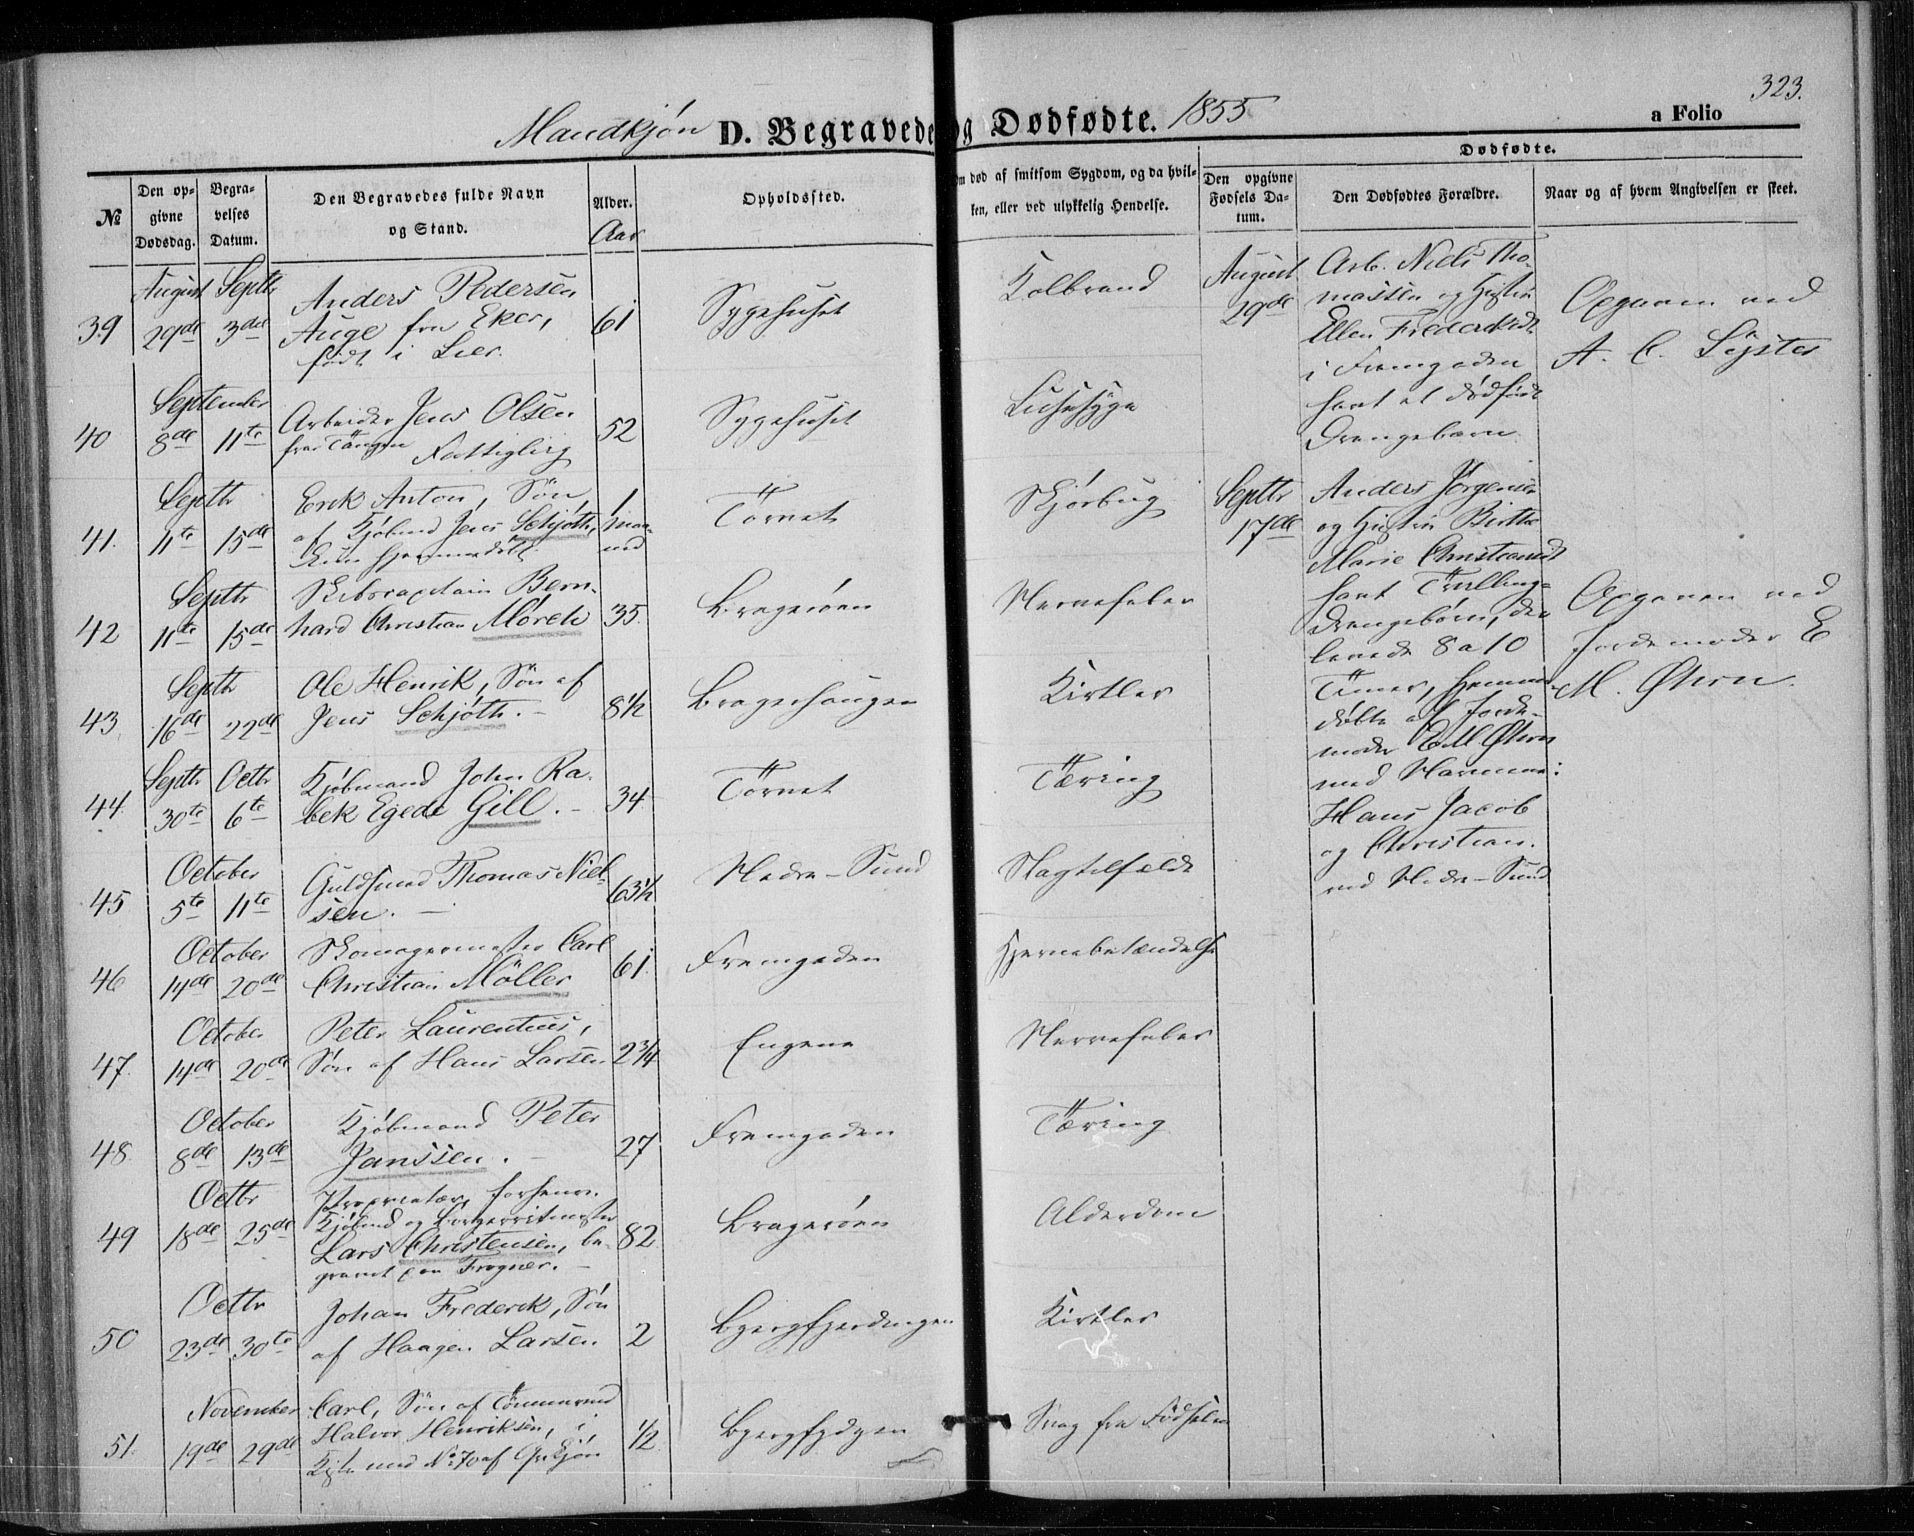 323.
Mandkjøn D. Begravede og Dødfødte. 1855
a Folio
Dødfødte.
№
Den opgivne Dødsdag.
Begravelses Datum.
Den Begravedes fulde Navn og Stand.
Alder.
Aar
Opholdssted.
Om død af smitsom Sygdom, og da hvilken, eller ved ulykkelig Hendelse.
Den opgivne Fødsels Datum.
Den Dødfødtes Forældre.
Naar og af hvem Angivelsen er skeet.
39
August 29de
Septbr 3die
Anders Pedersen
Auge fra Eker,
født i Lier.
61
Sygehuset
Kolbrand
40
September
8de 11te
Arbeider Jens Olsen
fra Tangen Fattiglem
52
Sygehuset
41.
Septbr
11te 15de
Erik Anton, Søn
af Kjøbmd Jens Schjøth,
hjemmedøbt
1 maaned
Tørnet
Skjørbug
42
Septbr
11te 15de
Skibscaptain Bernhard Christian Mørch
35.
Bragerøen
Nervefeber
43
Septbr
16de 22de
Ole Henrik, Søn af
Jens Schjøth. -
8½
Bragerhaugen
Kirtler
44.
Septbr 30te
Octbr 6te
Kjøbmand John Rabek Egede Gill. -
34
Tørnet
Tæring
45
October
5te 11te
Guldsmed Thomas Nielsen. -
63½
Nedre-Sund
Slagtilfælde
46
October
14de 20de
Skomagermester Carl
Christian Möller
61.
Fremgaden
Hjernebetændelse
47.
October
14de 20de
Peter Laurentius,
Søn af Hans Larsen
2¾
Engene
Nervefeber
48
October
8de 13de
Kjøbmand Peter
Janssen. -
27
Fremgaden
Tæring
49
Octbr
18de 25de
Proprietær, forhenv.
Kjøbmd og Borgerritmester
Lars Christensen, begravet paa Frogner. -
82
Bragerøen
Alderdom
50
Octbr
23de 30te
Johan Frederik, Søn
af Haagen Larsen
2
Bjergfjerdingen
Kirtler
51.
November
19de 29de
Carl, Søn af Tømmermd
Halvor Henriksen, i
Kiste med No 70 af Qvkjøn
½
Svag fra Fødselen
August
29de
Arb. Niels Thomassen og Hustru
Ellen Frederiksdt
i Fremgaden
havt et dødfødt
Drengebarn.
Opgaven ved
Septbr
17de
Anders Jørgensen
og Hustru Birthe
Marie Christiansdt
havt Tvillingedrengebørn, der
levede 8 a 10
Timer, hjemmedøbte af Jordemoder E M Øhrn
med Navnene:
Hans Jacob
og Christian.
ved Nedre-Sund
Opgaven ved
Jordemoder E
M. Øhrn.